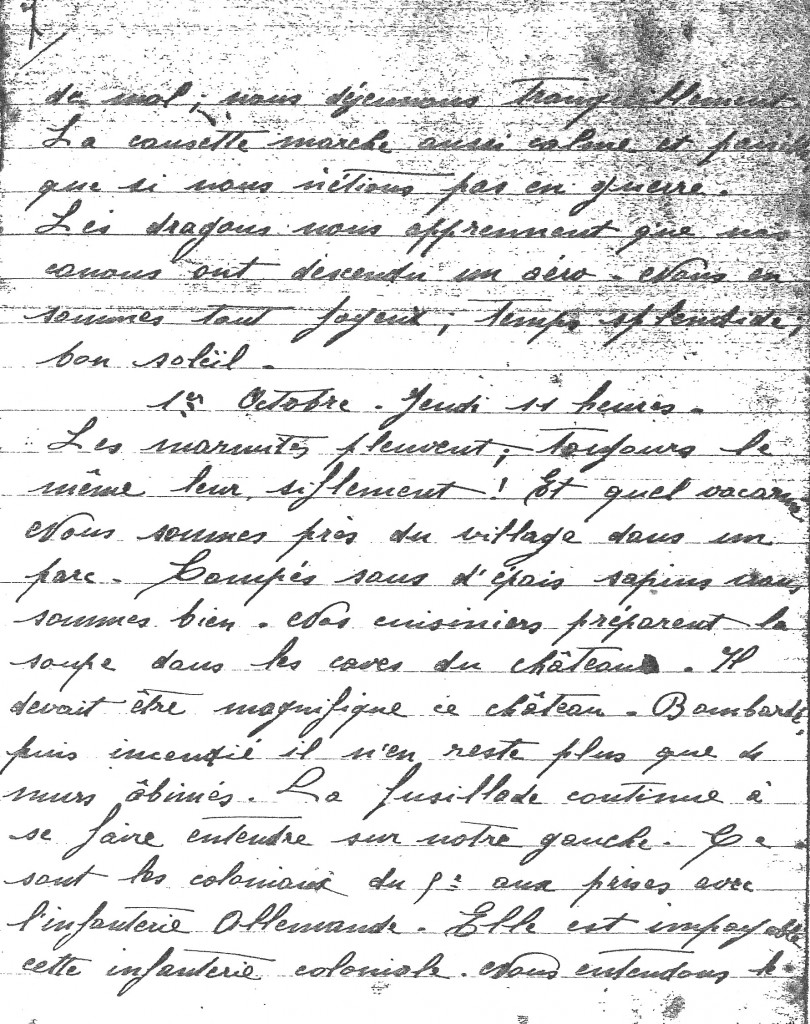 7
de mal ; nous déjeunons tranquillement.
La causette marche aussi calme et
que si nous n'étions pas en guerre.
Les dragons nous apprennent que nos
canons ont descendu un aéro. Nous en
sommes tout joyeux ; temps splendide,
bon soleïl.
1er Octobre. Jeudi 11 heures.
Les marmites pleuvent ; toujours le
même leur siflement ! Et quel vacarme
Nous sommes près du village dans un
parc. Campés sous d'épais sapins nous
sommes bien. Nos cuisiniers préparent la
soupe dans les caves du château. Il
devait être magnifique ce château. Bombardé,
puis incendié il n'en reste plus que de
murs âbimés. La fusillade continue à
se faire entendre sur notre gauche. Ce
sont les coloniaux du aux prises avec
l'infanterie Allemande. Elle est impayable
cette infanterie coloniale. Nous entendons le